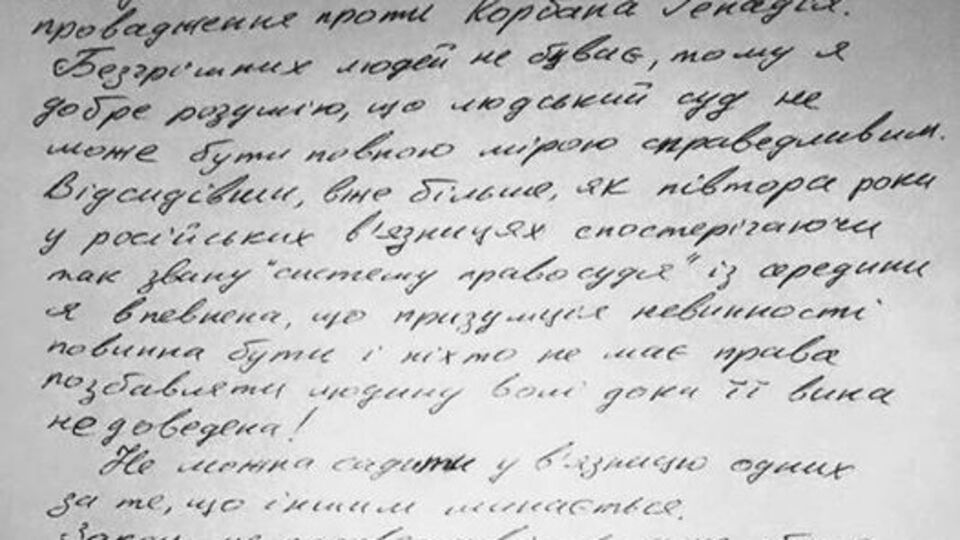 провадження проти Корбана Генадія.
Безгрішних людей не буває, тому я
добре розумію, що людський суд не
може бути повною мірою справедливим.
Відсидівши, вже більше, як півтора роки
у російських в'язницях спостерігаючи
так звану "систему правосудія" із середини
я впевнена, що призумція невинності
повинна бути і ніхто не має права
позбавляти людину волі доки її вина
не доведена!
Не можна садити у в'язницю одних
за те, що іншим минається.
Закон не